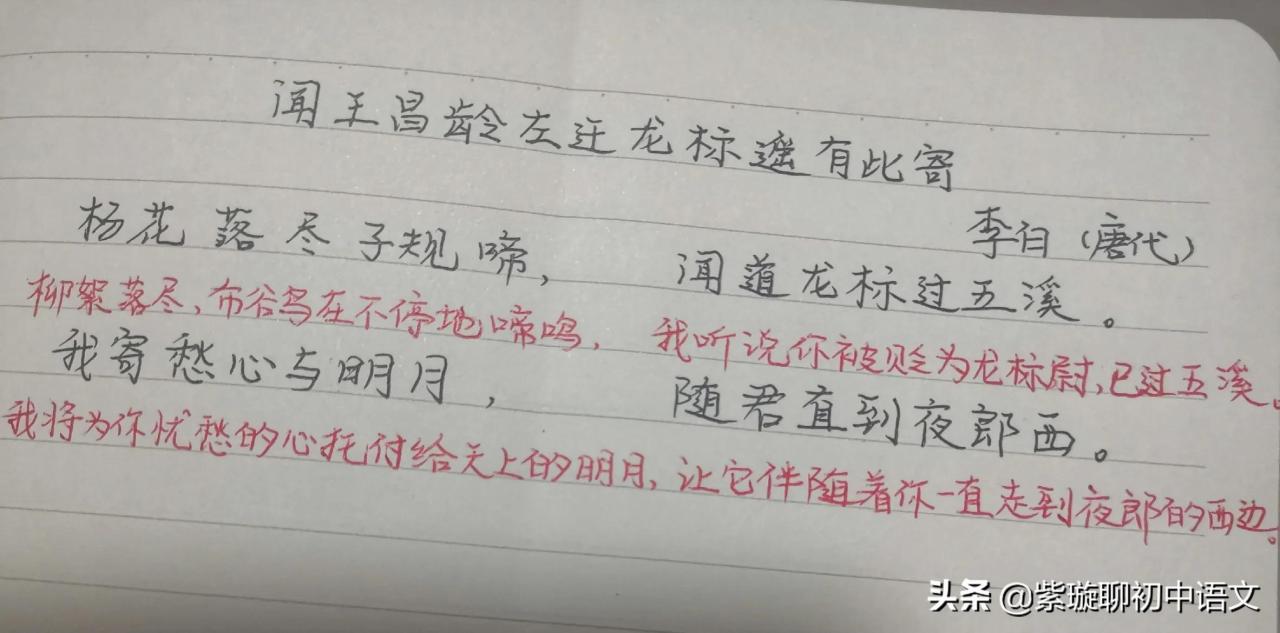 闻王昌龄左迁龙标遥有此寄
李白（唐代）
杨花落尽子规啼，闻道龙标过五溪。
柳絮落尽，布谷鸟在不停地啼鸣，我听说你被贬为龙标尉，已过五溪。
我寄愁心与明月，随君直到夜郎西。
我将为你忧愁的心托付给天上的明月，让它伴随着你一直走到夜郎的西边。
头条 @紫璇聊初中语文